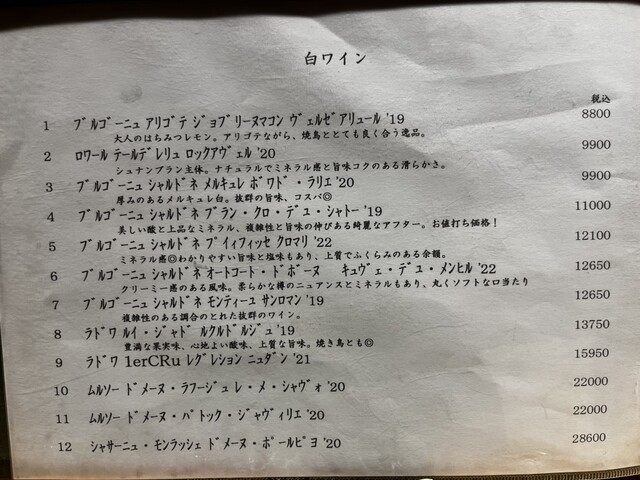 白ワイン
税込
1 ブルゴーニュ アリゴテ ジョブリーヌマコン ヴェルゼアリュール '19 8800
大人のはちみつレモン。アリゴテながら、焼鳥ととても良く合う逸品。
2 ロワール テールデレリュ ロックアヴェル '20 9900
シュナンブラン主体。ナチュラルでミネラル感と旨味コクのある滑らかさ。
3 ブルゴーニュ シャルドネ メルキュレ ボワド・ラリエ '20 9900
厚みのあるメルキュレ白。抜群の旨味、コスパ◎
4 ブルゴーニュ シャルドネ ブラン・クロ・デユ・シャトー '19 11000
美しい酸と上品なミネラル、複雑性と旨味の伸びある綺麗なアフター。お値打ち価格!
5 ブルゴーニュ シャルドネ プイィフィッセ クロマリ '22 12100
ミネラル感◎わかりやすい旨味と塩味もあり、上質でふくらみのある余韻。
6 ブルゴーニュ シャルドネ オートコート・ドボーヌ キュヴェ・デユ・メンヒル '22 12650
クリーミー感のある風味。柔らかな樽のニュアンスとミネラルもあり、丸くソフトな口当たり
7 ブルゴーニュ シャルドネ モンティーユ サンロマン '19 12650
複雑性のある調合のとれた抜群のワイン。
8 ラドワ ルイ・ジャド ルクルドルジュ '19 13750
豊満な果実味、心地よい酸味、上質な旨味。焼き鳥とも◎
9 ラドワ 1erCRu レグレション ニュダン '21 15950
10 ムルソー ドメーヌ・ラフージュ レ・メ・シャヴォ '20 22000
11 ムルソー ドメーヌ・パトック・ジャヴィリエ '20 22000
12 シャサーニュ・モンラッシェ ドメーヌ・ポールピヨ '20 28600